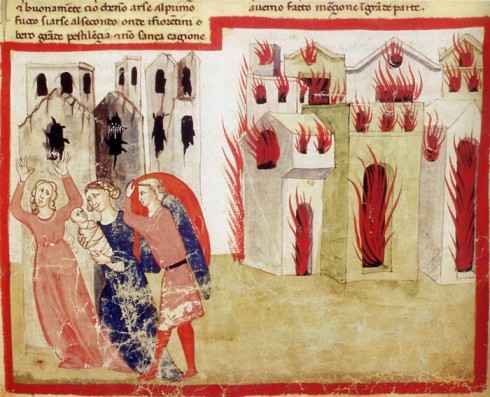 ⁊ buonamẽte cio chẽno arse alprimo
fuoco siarse alsecondo onde ifiorẽtini e
bero grãde pestilẽça ⁊ nõ sança cagione
aueno facto mẽçione ĩ grãde parte.